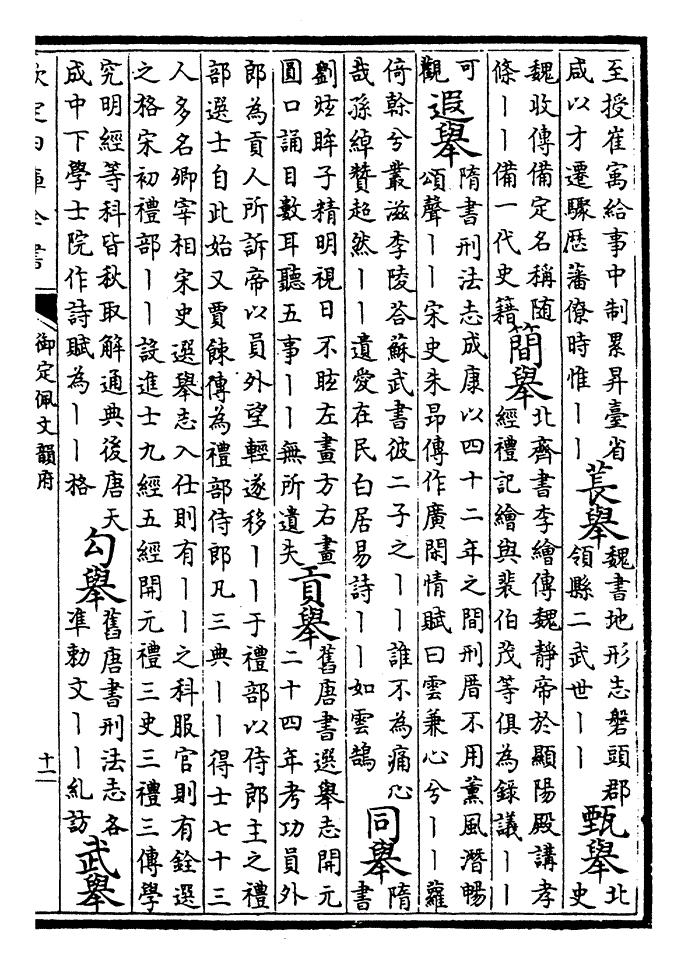 至授崔寓給事中制累昇臺省
咸以才遷驟歷藩僚時惟丨丨
萇舉
魏書地形志磐頭郡
領縣二武世丨丨
甄舉
北
史
魏收傳備定名稱隨
條丨丨備一代史籍
簡舉
北齊書李繪傳魏靜帝於顯陽殿講孝
經禮記繪與裴伯茂等俱為錄議丨丨
可
觀
遐舉
隋書刑法志成康以四十二年之間刑厝不用薫風潛暢
頌聲丨丨宋史朱昂傳作廣閑情賦曰雲兼心兮丨丨蘿
倚幹兮叢滋李陵荅蘇武書彼二子之丨丨誰不為痛心
哉孫綽贊超然丨丨遺愛在民白居易詩丨丨如雲鵠
同舉
隋
書
劉炫眸子精明視日不眩左畫方右畫
圓口誦目數耳聽五事丨丨無所遺失
貢舉
舊唐書選舉志開元
二十四年考功員外
郎為貢人所訴帝以員外望輕遂移丨丨于禮部以侍郎主之禮
部選士自此始又賈餗傳為禮部侍郎凡三典丨丨得士七十三
人多名卿宰相宋史選舉志入仕則有丨丨之科服官則有銓選
之格宋初禮部丨丨設進士九經五經開元禮三史三禮三傳學
究明經等科皆秋取解通典後唐天
成中下學士院作詩賦為丨丨格
勾舉
舊唐書刑法志各
凖勅文丨丨糺訪
武舉
欽定四庫全書
御定佩文韻府
十二